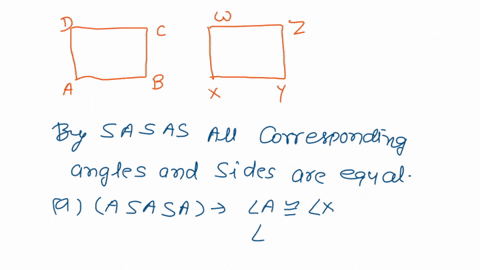 D C W Z
A B X Y
By SASAS All Corresponding
angles and Sides are equal.
(a) (ASASA) → ∠A ≅ ∠X
∠